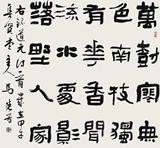 萬樹寒無
色南枝獨
有花香聞
流水處影
落野人家
甲子
主人馬